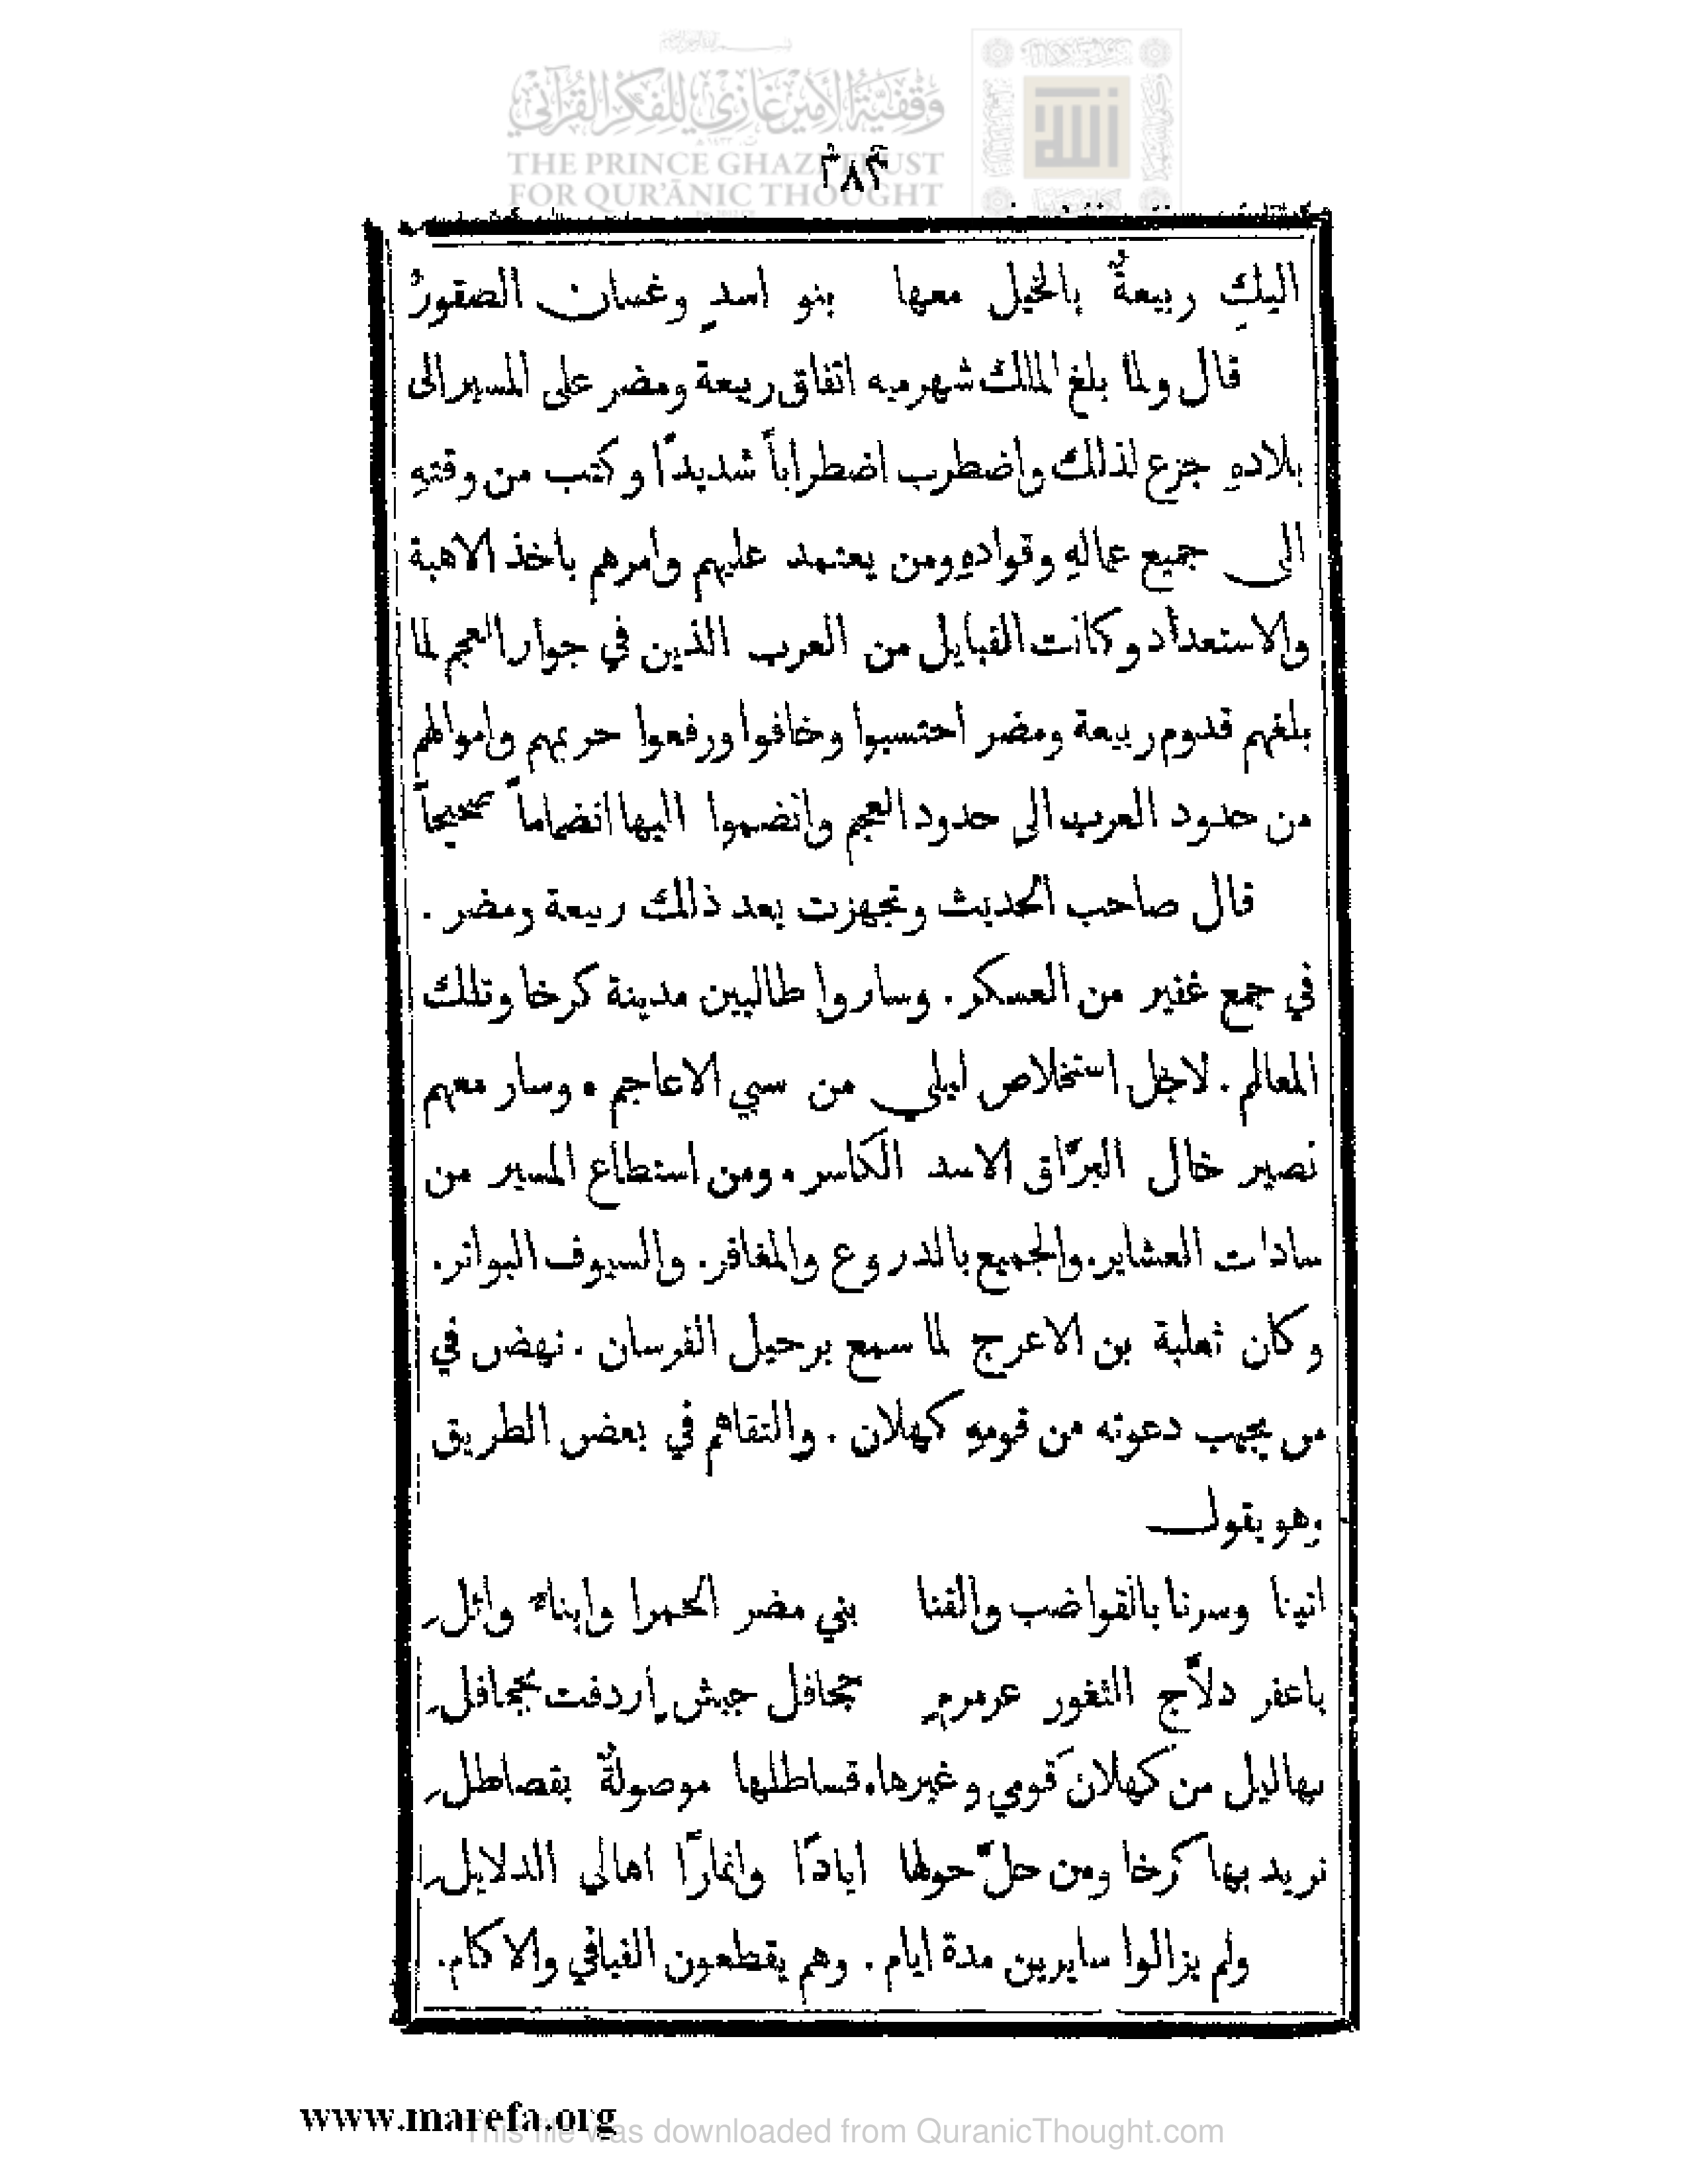 وقفية الأمير غازي للفكر القرآني
THE PRINCE GHAZI TRUST
FOR QUR'ĀNIC THOUGHT
اليكِ ربيعةٌ بالخيل معها بنو اسدٍ وغسان الصقورُ
قال ولما بلغ الملك شهرميه اتفاق ربيعة ومضر على المسير الى
بلادهِ جزع لذلك واضطرب اضطراباً شديدًا وكتب من وقتهِ
الى جميع عمالهِ وقوادهِ ومن يعتمد عليهم وامرهم باخذ الاهبة
والاستعداد وكانت القبايل من العرب الذين في جوار العجم لما
بلغهم قدوم ربيعة ومضر احتسبوا وخافوا ورفعوا حريمهم واموالهم
من حدود العرب الى حدود العجم وانضموا اليها انضماماً صحيحاً
قال صاحب الحديث وتجهزت بعد ذلك ربيعة ومضر .
في جمع غفير من العسكر . وساروا طالبين مدينة كرخا وتلك
المعالم . لاجل استخلاص ليلى من سبي الاعاجم . وسار معهم
نصير خال البرّاق الاسد الكاسر . ومن استطاع المسير من
سادات العشاير . والجميع بالدروع والمغافر . والسيوف البواتر .
وكان ثعلبة بن الاعرج لما سمع برحيل الفرسان . نهض في
من يجيب دعوته من قومهِ كهلان . والتقاهم في بعض الطريق
وهو يقول
اتينا وسرنا بالقواضب والقنا بني مضر الحمرا وابناء وائلِ
باعفر دلاّج الثغور عرمرمٍ جحافل جيشٍ اردفت بجحافلِ
بهاليل من كهلانَ قومي وغيرها . قساطلها موصولةٌ بقساطلِ
نريد بها كرخا ومن حلّ حولها ايادًا وانمارًا اهالي الدلايلِ
ولم يزالوا سايرين مدة ايام . وهم يقطعون الفيافي والاكام .
www.marefa.org
This file was downloaded from QuranicThought.com